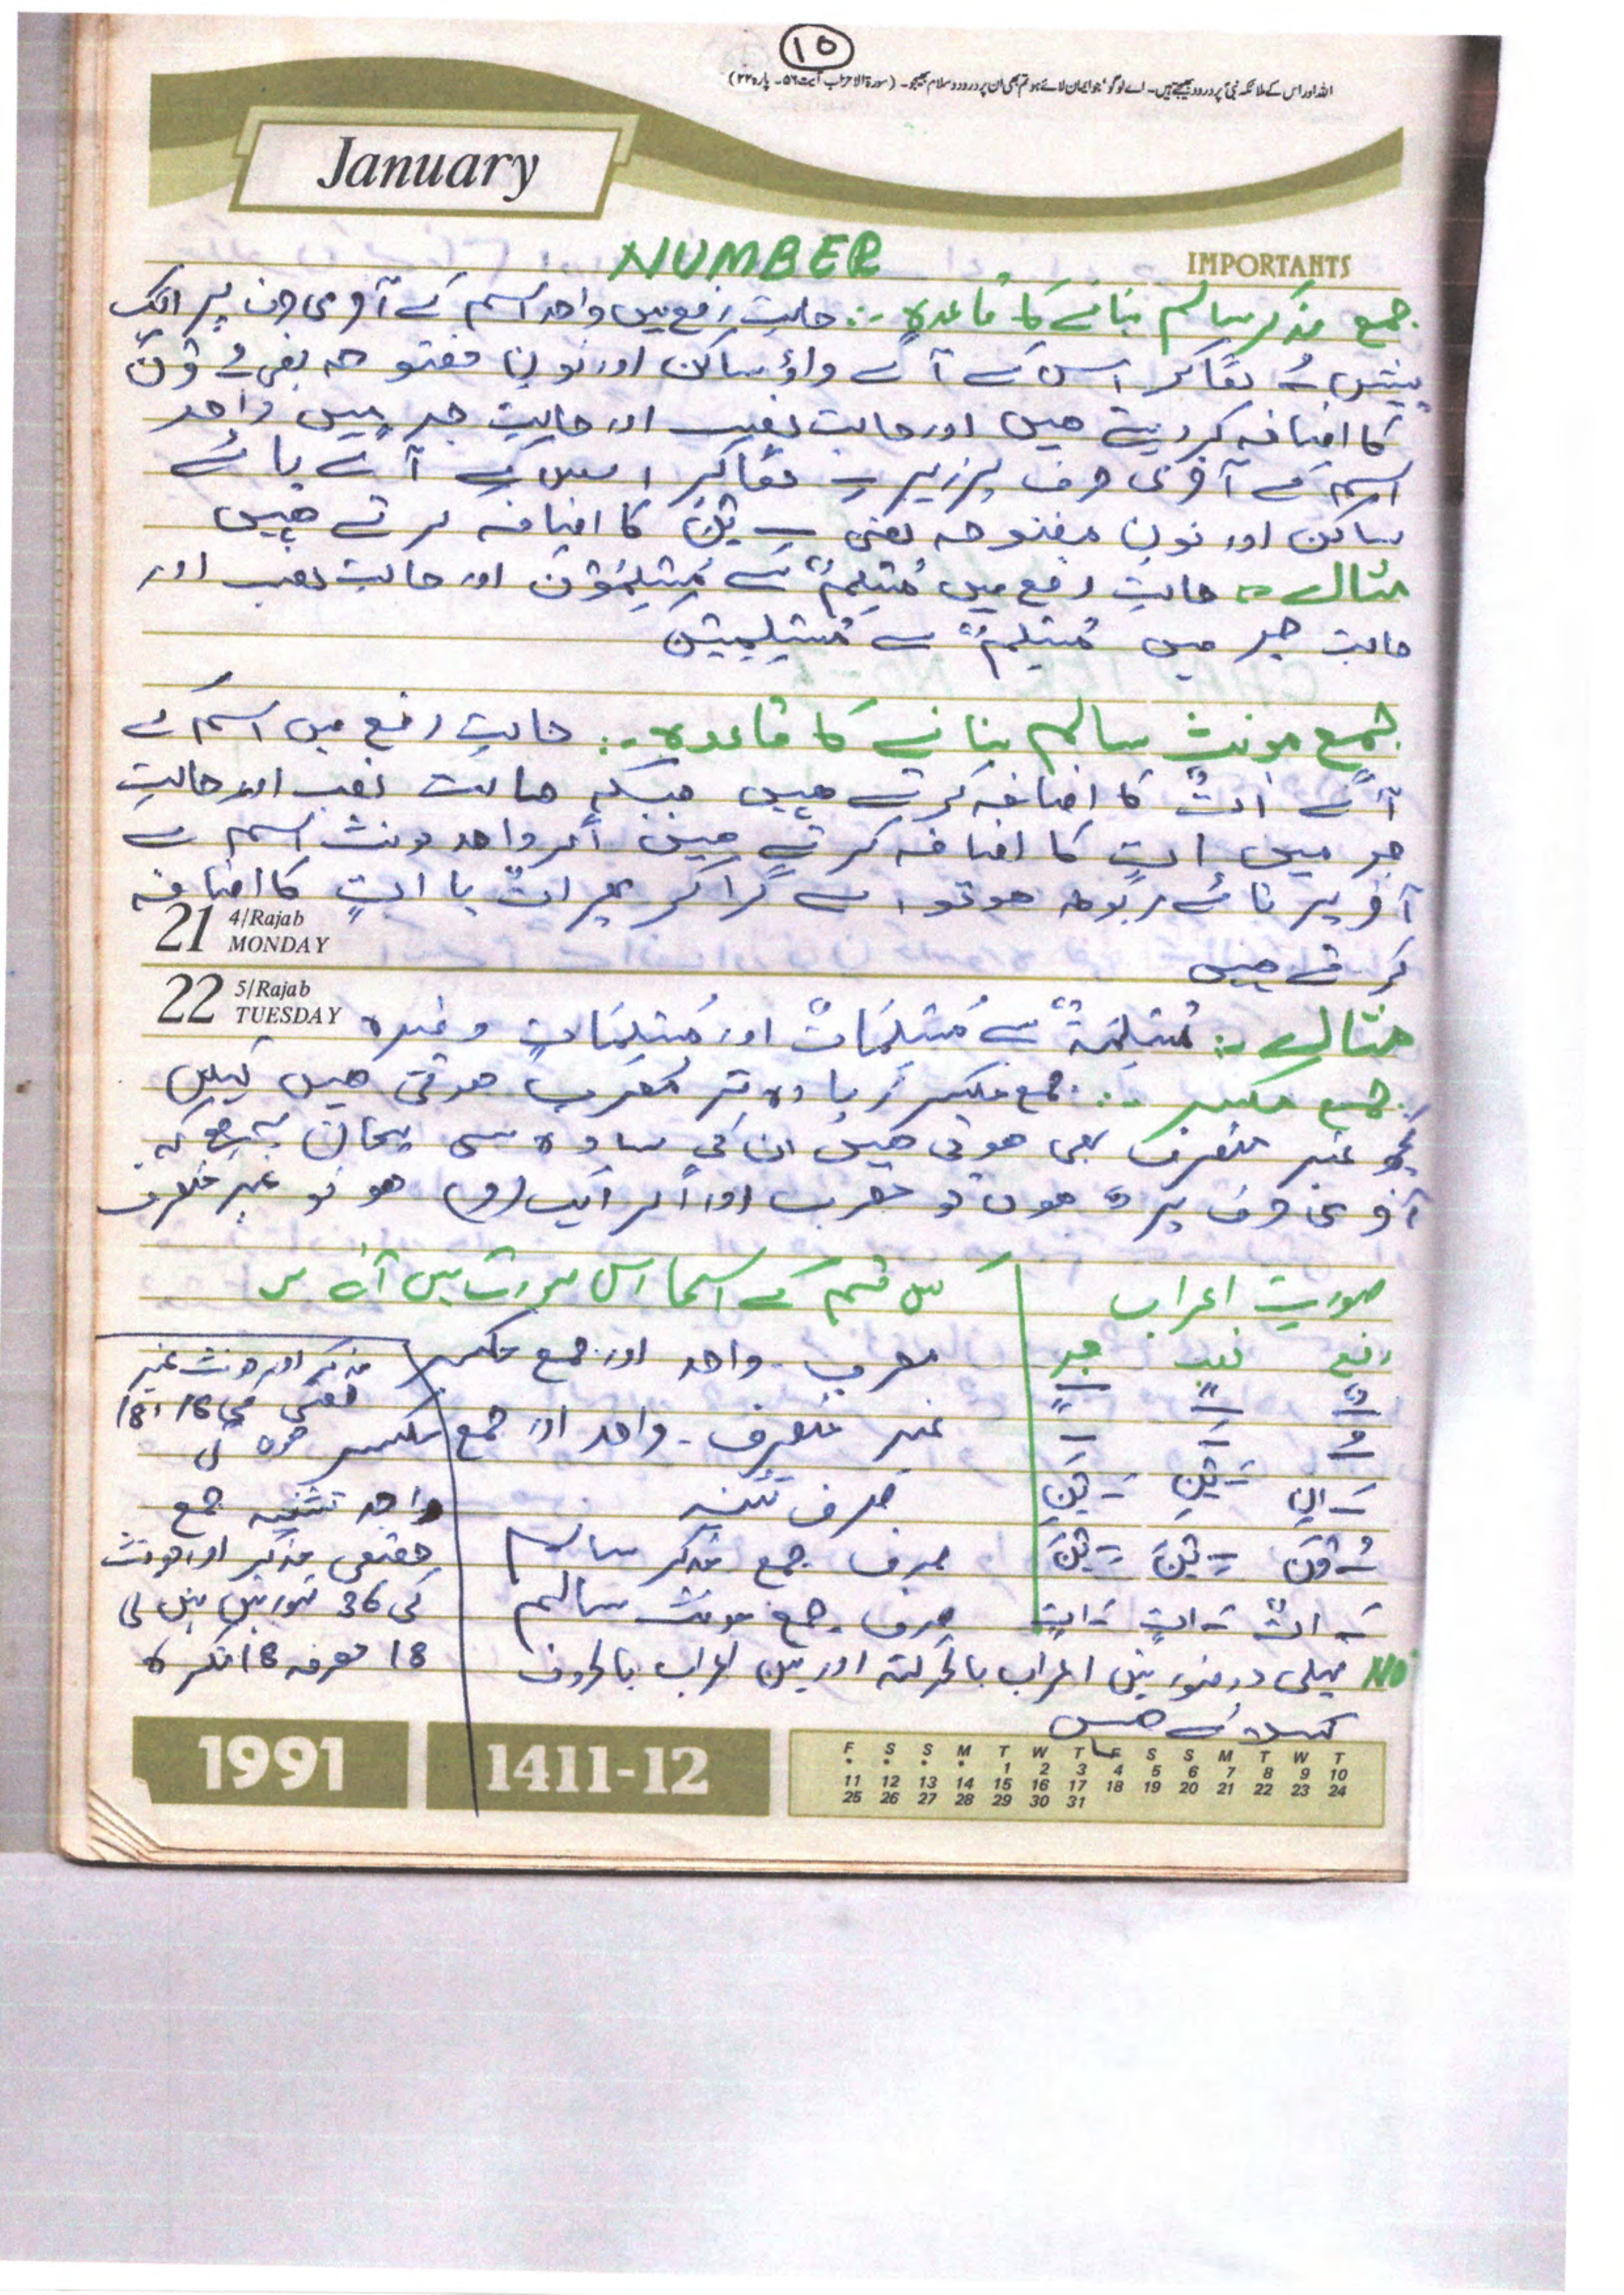 ١٥
اللہ اور اس کے ملائکہ نبیؐ پر درود بھیجتے ہیں۔ اے لوگو جو ایمان لائے ہو تم بھی ان پر درود و سلام بھیجو۔ (سورۃ الاحزاب آیت ۵۶۔ پارہ ۲۲)
January
NUMBER
IMPORTANTS
جمع مذکر سالم بنانے کا قاعدہ :۔ حالتِ رفع میں واحد اسم کے آخری حرف پر ایک
پیش ـُ لگا کر اس کے آگے واؤ ساکن اور نون مفتوحہ یعنی ـُ وْنَ
کا اضافہ کر دیتے ھیں اور حالت نصب اور حالتِ جر میں واحد
اسم کے آخری حرف پر زیر ـِ لگا کر اس کے آگے یائے
ساکن اور نون مفتوحہ یعنی ـِ یْنَ کا اضافہ کرتے ھیں
مثال = حالتِ رفع میں مُسْلِمٌ سے مُسْلِمُوْنَ اور حالت نصب اور
حالت جر میں مُسْلِمٌ سے مُسْلِمِیْنَ
جمع مونث سالم بنانے کا قاعدہ :۔ حالتِ رفع میں اسم کے
آگے اتٌ کا اضافہ کرتے ھیں جبکہ حالت نصب اور حالتِ
جر میں اتٍ کا اضافہ کرتے ھیں اگر واحد مونث اسم کے
آخر پر تائے مربوطہ ھو تو اسے گرا کر پھر اتٌ یا اتٍ کا اضافہ
21 4/Rajab MONDAY
کرتے ھیں
22 5/Rajab TUESDAY
مثال :۔ مُسْلِمَةٌ سے مُسْلِمَاتٌ اور مُسْلِمَاتٍ وغیرہ
جمع مکسر :۔ جمع مکسر زیادہ تر معرب ھوتی ھیں لیکن
کچھ غیر منصرف بھی ھوتی ھیں ان کی سادہ سی پہچان یہ ھے کہ
آخری حرف پر ـٌ ھوں تو معرب اور اگر ایک (ـُ) ھو تو غیر منصرف
صورتِ اعراب
کس قسم کے اسما اس صورت میں آتے
رفع نصب جر
ـٌ ـً ـٍ معرب۔ واحد اور جمع مکسر
ـُ ـَ ـَ غیر منصرف۔ واحد اور جمع مکسر
ـَ انِ ـَ یْنِ ـَ یْنِ صرف تثنیہ
ـُ وْنَ ـِ یْنَ ـِ یْنَ صرف جمع مذکر سالم
ـَ اتٌ ـَ اتٍ ـَ اتٍ صرف جمع مونث سالم
مذکر اور مونث غیر
حقیقی کی 18/18
ھوں گی
واحد تثنیہ جمع
حقیقی مذکر اور مونث
کی 36 صورتیں بنیں گی
18 معرفہ 18 نکرہ
پہلی دو صورتیں اعراب بالحرکتہ اور تین اعراب بالحروف
کہلاتے ھیں
1991
1411-12
F S S M T W T F S S M T W T
* * * * 1 2 3 4 5 6 7 8 9 10
11 12 13 14 15 16 17 18 19 20 21 22 23 24
25 26 27 28 29 30 31